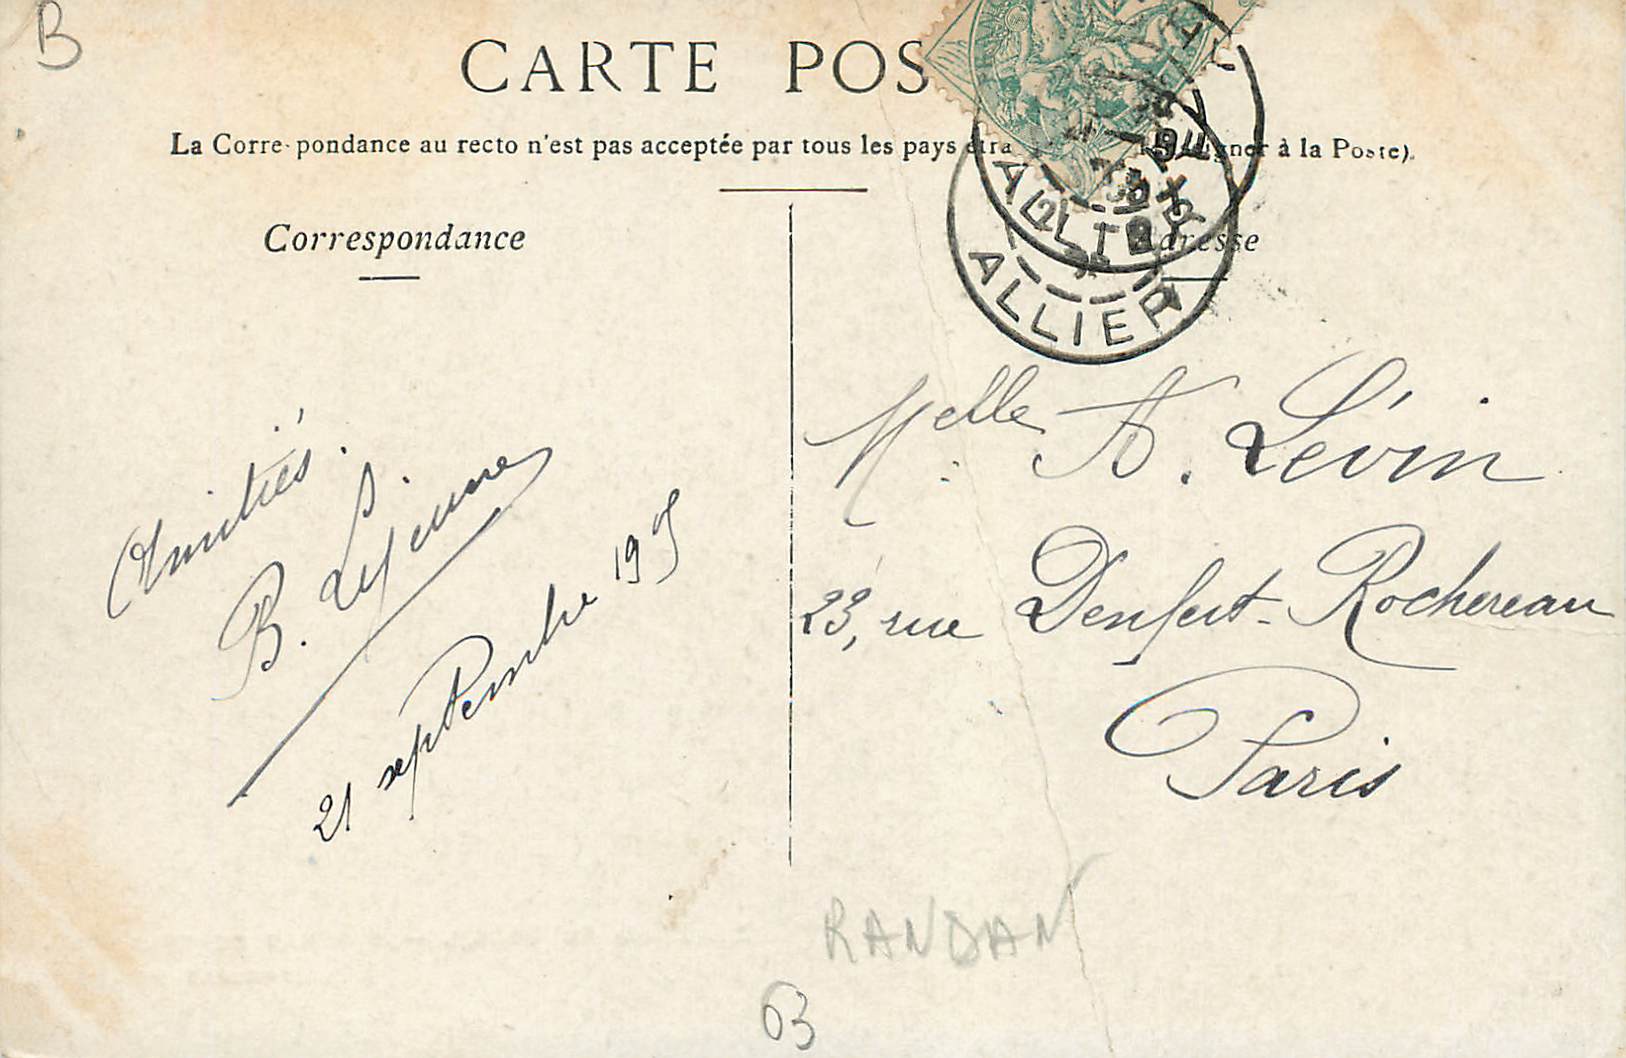 B
CARTE POS
La Corre pondance au recto n'est pas acceptée par tous les pays à la Poste).
Correspondance
Adresse
ALLIER
ALLIER
Amitiés.
B. Lejeune
21 septembre 195
Melle A. Lévin
23, rue Denfert-Rochereau
Paris
RANDAN
63